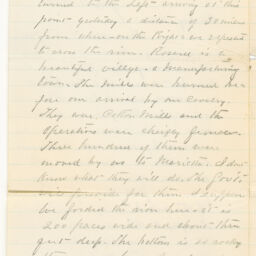 turned to the left - arriving at this
point yesterday a distance of 30 miles
from where on the Right we expect
to cross the river. Roswell is a
beautiful village - a manufacturing
town. The Mills were burned be-
fore our arrival by our Cavalry.
They were Cotton Mills and the
operatives were chiefly females.
Three hundred of them were
moved by us to Marietta. I don't
know what they will do. The Gov't
will provide for them I suppose
We forded the river here - it is
200 paces wide and about three
feet deep. The bottom is so rocky